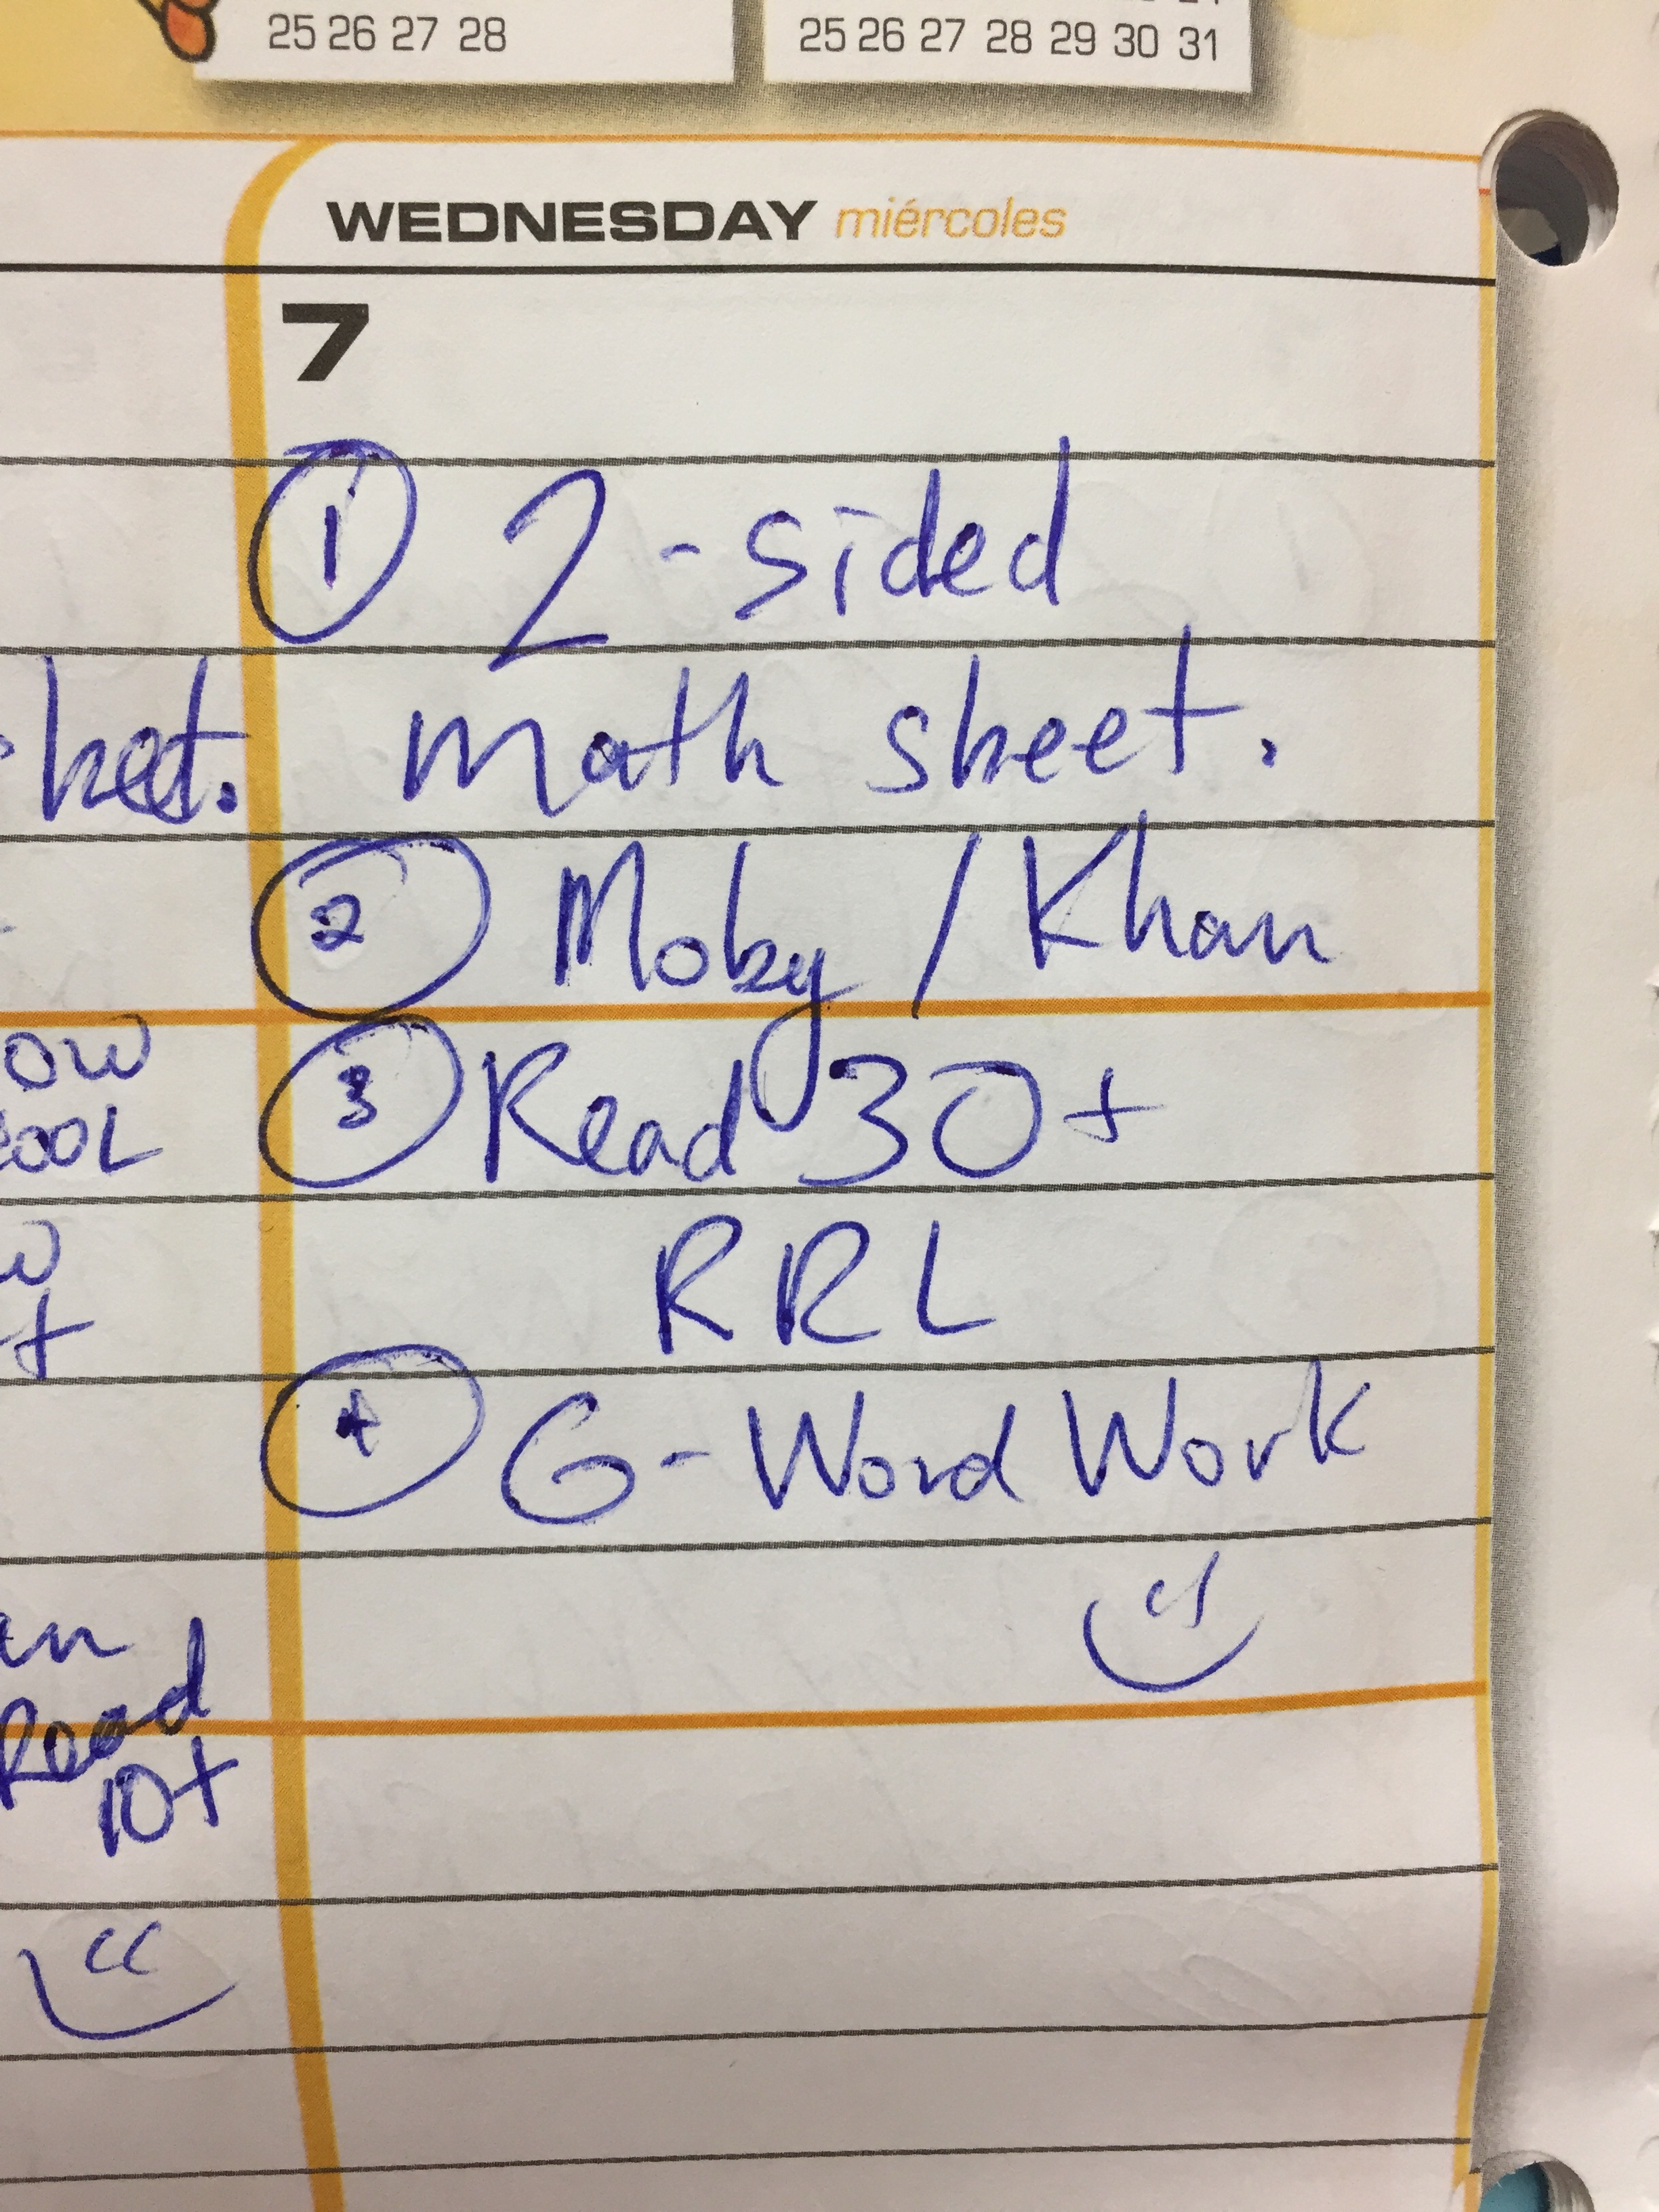 25 26 27 28
25 26 27 28 29 30 31
WEDNESDAY miércoles
7
1 2-sided
math sheet.
2 Moby / Khan
3 Read 30+
RRL
4 G-Word Work
Read
10+